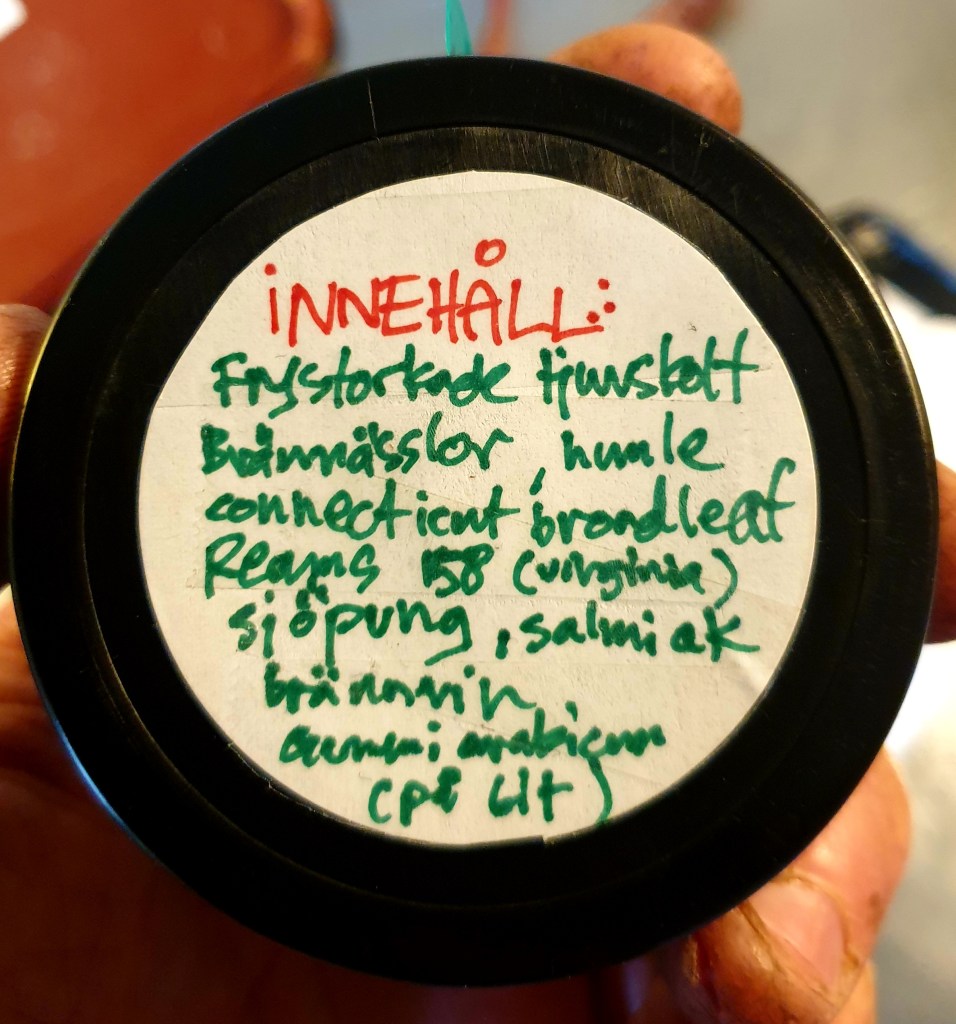 INNEHÅLL:
Frystorkade tjurskott
Brännässlor, humle
connecticut broadleaf
Reams 158 (virginia)
sjöpung, salmiak
brännvin.
Gummi arabicum
(på